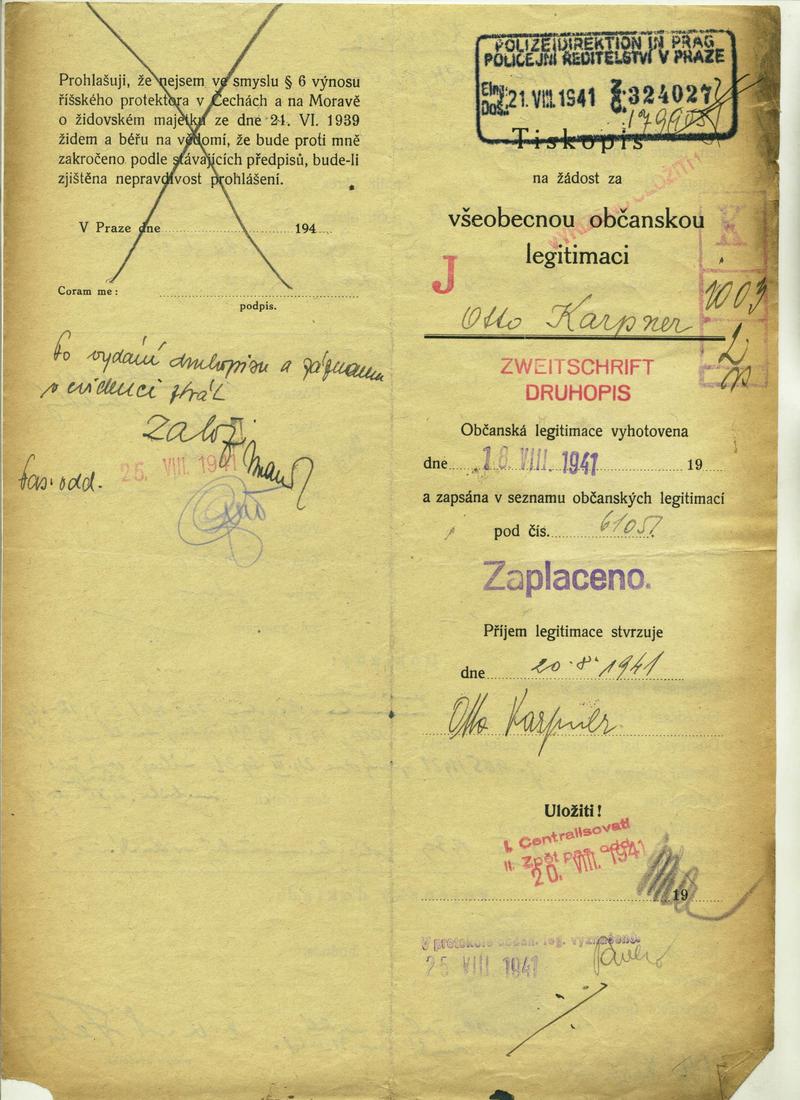 Prohlašuji, že nejsem ve smyslu § 6 výnosu
říšského protektora v Čechách a na Moravě
o židovském majetku ze dne 21. VI. 1939
židem a béřu na vědomí, že bude proti mně
zakročeno podle stávajících předpisů, bude-li
zjištěna nepravdivost prohlášení.
V Praze dne 194
Coram me:
podpis.
Po vydání druhopisu a záznamu
v evidenci ztrát
Založ
25. VIII. 1941
Pas. odd.
POLIZEIDIREKTION IN PRAG
POLICEJNÍ ŘEDITELSTVÍ V PRAZE
Eing.
Doš. 21. VIII. 1941 324027
Tiskopis
na žádost za
všeobecnou občanskou
legitimaci
J
K
1003
Otto Karpner
ZWEITSCHRIFT
DRUHOPIS
Občanská legitimace vyhotovena
dne 18. VIII. 1941 19
a zapsána v seznamu občanských legitimací
pod čís. 61057
Zaplaceno.
Příjem legitimace stvrzuje
dne 20. 8. 1941
Otto Karpner
Uložiti!
I. Centralisovati
II. Zpět pas. odd.
20. VIII. 1941
19
V protokole občan. leg. vyznačeno.
25 VIII 1941